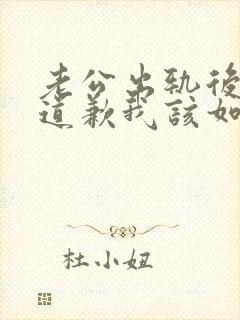 老公出轨後
道歉我該如
杜小妞